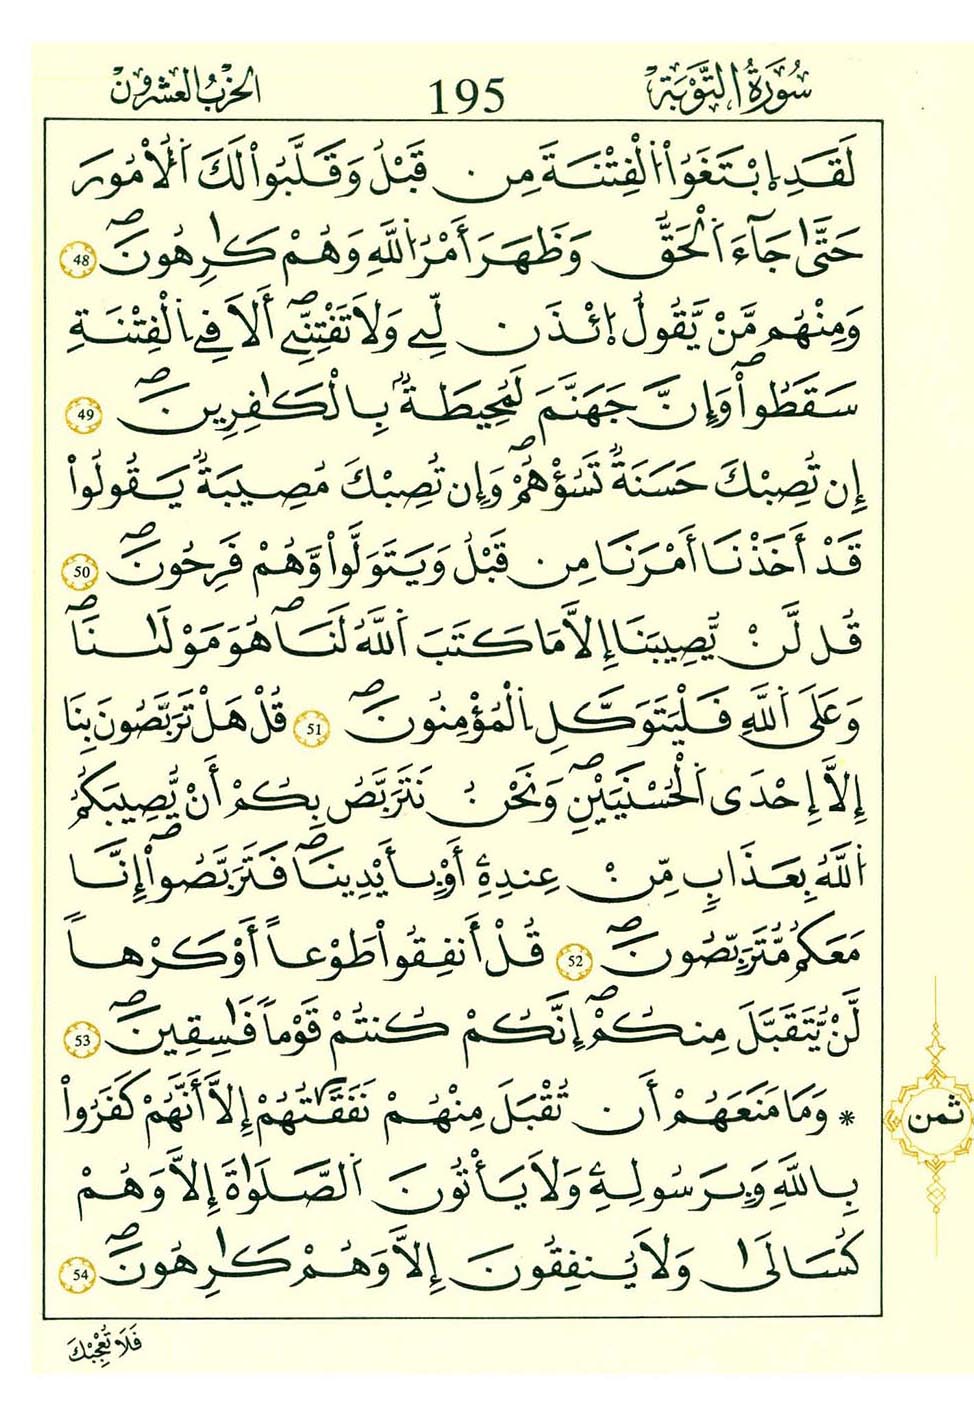 سُورَةُ التَّوْبَةِ 195 الحِزْبُ العِشْرُونَ
لَقَدِ اِبْتَغَوُاْ اُ۬لْفِتْنَةَ مِن قَبْلُ وَقَلَّبُواْ لَكَ اَ۬لُامُورَ
حَتَّىٰ جَآءَ اَ۬لْحَقُّ وَظَهَرَ أَمْرُ اُ۬للَّهِ وَهُمْ كَٰرِهُونَۖ 48
وَمِنْهُم مَّنْ يَّقُولُ اُ۪ئْذَن لِّے وَلَا تَفْتِنِّےۖ أَلَا فِے اِ۬لْفِتْنَةِ
سَقَطُواْۖ وَإِنَّ جَهَنَّمَ لَمُحِيطَةُۢ بِالْكَٰفِرِينَۖ 49
إِن تُصِبْكَ حَسَنَةٌ تَسُؤْهُمْۖ وَإِن تُصِبْكَ مُصِيبَةٌ يَقُولُواْ
قَدْ أَخَذْنَا أَمْرَنَا مِن قَبْلُ وَيَتَوَلَّواْ وَّهُمْ فَرِحُونَۖ 50
قُل لَّنْ يُّصِيبَنَا إِلَّا مَا كَتَبَ اَ۬للَّهُ لَنَاۖ هُوَ مَوْلَىٰنَاۖ
وَعَلَى اَ۬للَّهِ فَلْيَتَوَكَّلِ اِ۬لْمُؤْمِنُونَۖ 51 قُلْ هَلْ تَرَبَّصُونَ بِنَا
إِلَّا إِحْدَى اَ۬لْحُسْنَيَيْنِۖ وَنَحْنُ نَتَرَبَّصُ بِكُمْ أَنْ يُّصِيبَكُمُ
اُ۬للَّهُ بِعَذَابٍ مِّنْ عِندِهِۦ أَوْ بِأَيْدِينَاۖ فَتَرَبَّصُواْۖ إِنَّا
مَعَكُم مُّتَرَبِّصُونَۖ 52 قُلْ أَنفِقُواْ طَوْعاً أَوْ كَرْهاً
لَّنْ يُّتَقَبَّلَ مِنكُمْۖ إِنَّكُمْ كُنتُمْ قَوْماً فَٰسِقِينَۖ 53
* وَمَا مَنَعَهُمْ أَن تُقْبَلَ مِنْهُمْ نَفَقَٰتُهُمْ إِلَّا أَنَّهُمْ كَفَرُواْ
ثمن
بِاللَّهِ وَبِرَسُولِهِۦ وَلَا يَأْتُونَ اَ۬لصَّلَوٰةَ إِلَّا وَهُمْ
كُسَالَىٰ وَلَا يُنفِقُونَ إِلَّا وَهُمْ كَٰرِهُونَۖ 54
فَلَا تُعْجِبْكَ